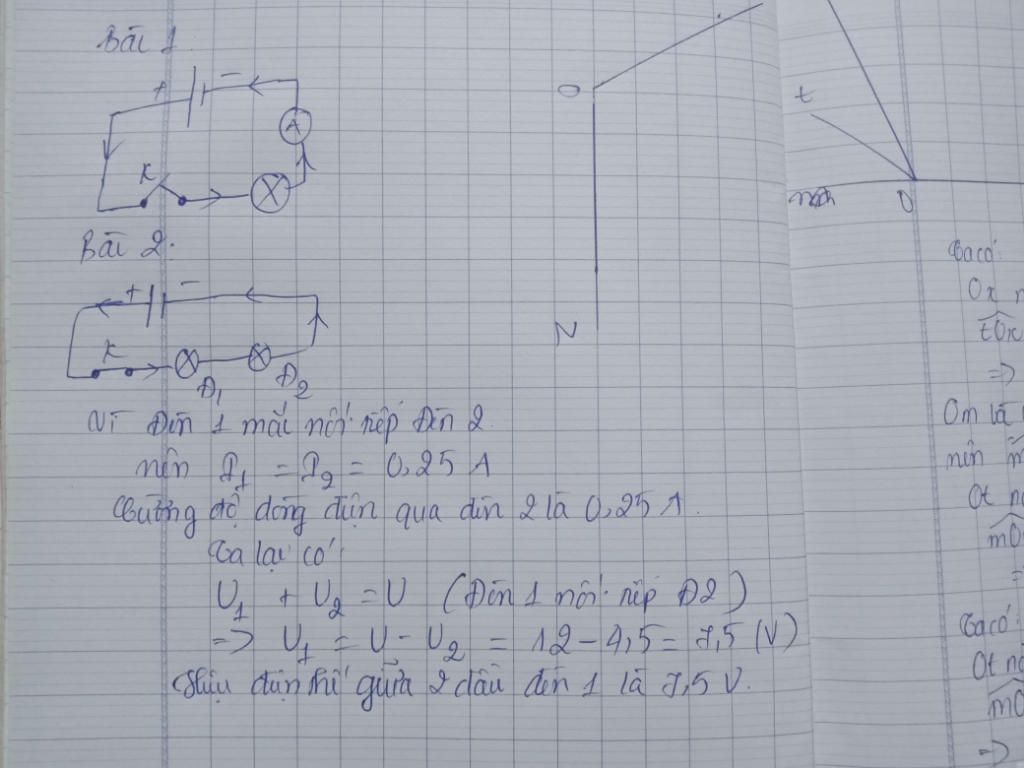 Bài 1
+ −
A
K
X
Bài 2:
+ −
K
Đ1 Đ2
Vì Đèn 1 mắc nối tiếp Đèn 2
nên I1 = I2 = 0,25 A
Cường độ dòng điện qua đèn 2 là 0,25 A.
Ta lại có:
U1 + U2 = U (Đèn 1 nối tiếp Đ2)
=> U1 = U − U2 = 12 − 4,5 = 7,5 (V)
Hiệu điện thế giữa 2 đầu đèn 1 là 7,5 V.
O
N
t
O
Ta có:
Ox
tOx
=>
Om là
nên
Ot
mO
=
Ta có:
Ot
mO
=>